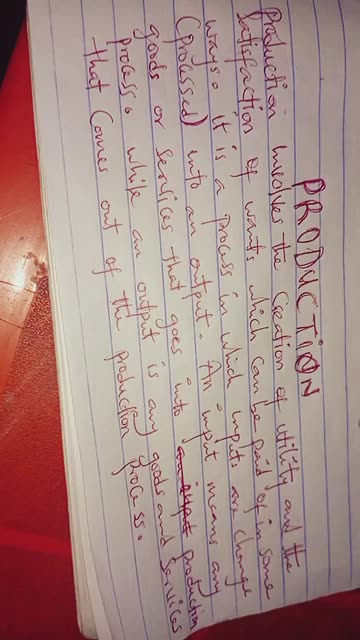 PRODUCTION
Production involves the Creation of utility and the
Satisfaction of wants which can be paid of in some
ways. it is a process in which inputs are change
(processed) into an output. An input means any
goods or services that goes into production
process. while an output is any goods and services
that Comes out of the production process.